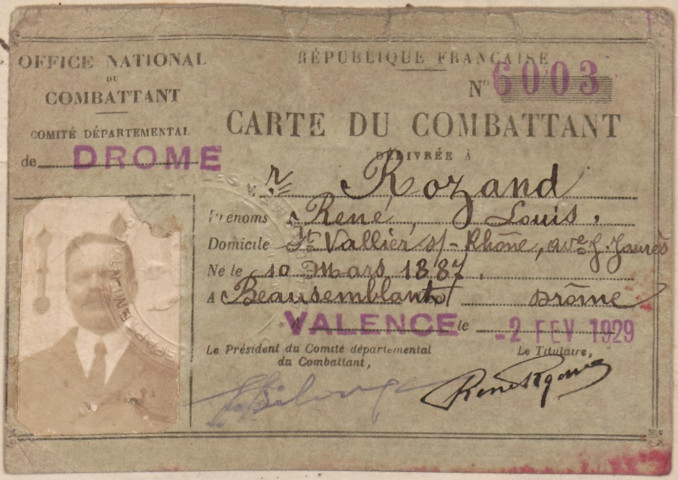 OFFICE NATIONAL
DU
COMBATTANT
COMITÉ DÉPARTEMENTAL
de DROME
RÉPUBLIQUE FRANÇAISE
N° 6003
CARTE DU COMBATTANT
DÉLIVRÉE À
Mr Rozand
Prénoms René, Louis.
Domicile St Vallier s/-Rhône, ave J. Jaurès
Né le 10 Mars 1887.
à Beausemblant Drôme
VALENCE le -2 FEV 1929
Le Président du Comité départemental
du Combattant,
Le Titulaire,